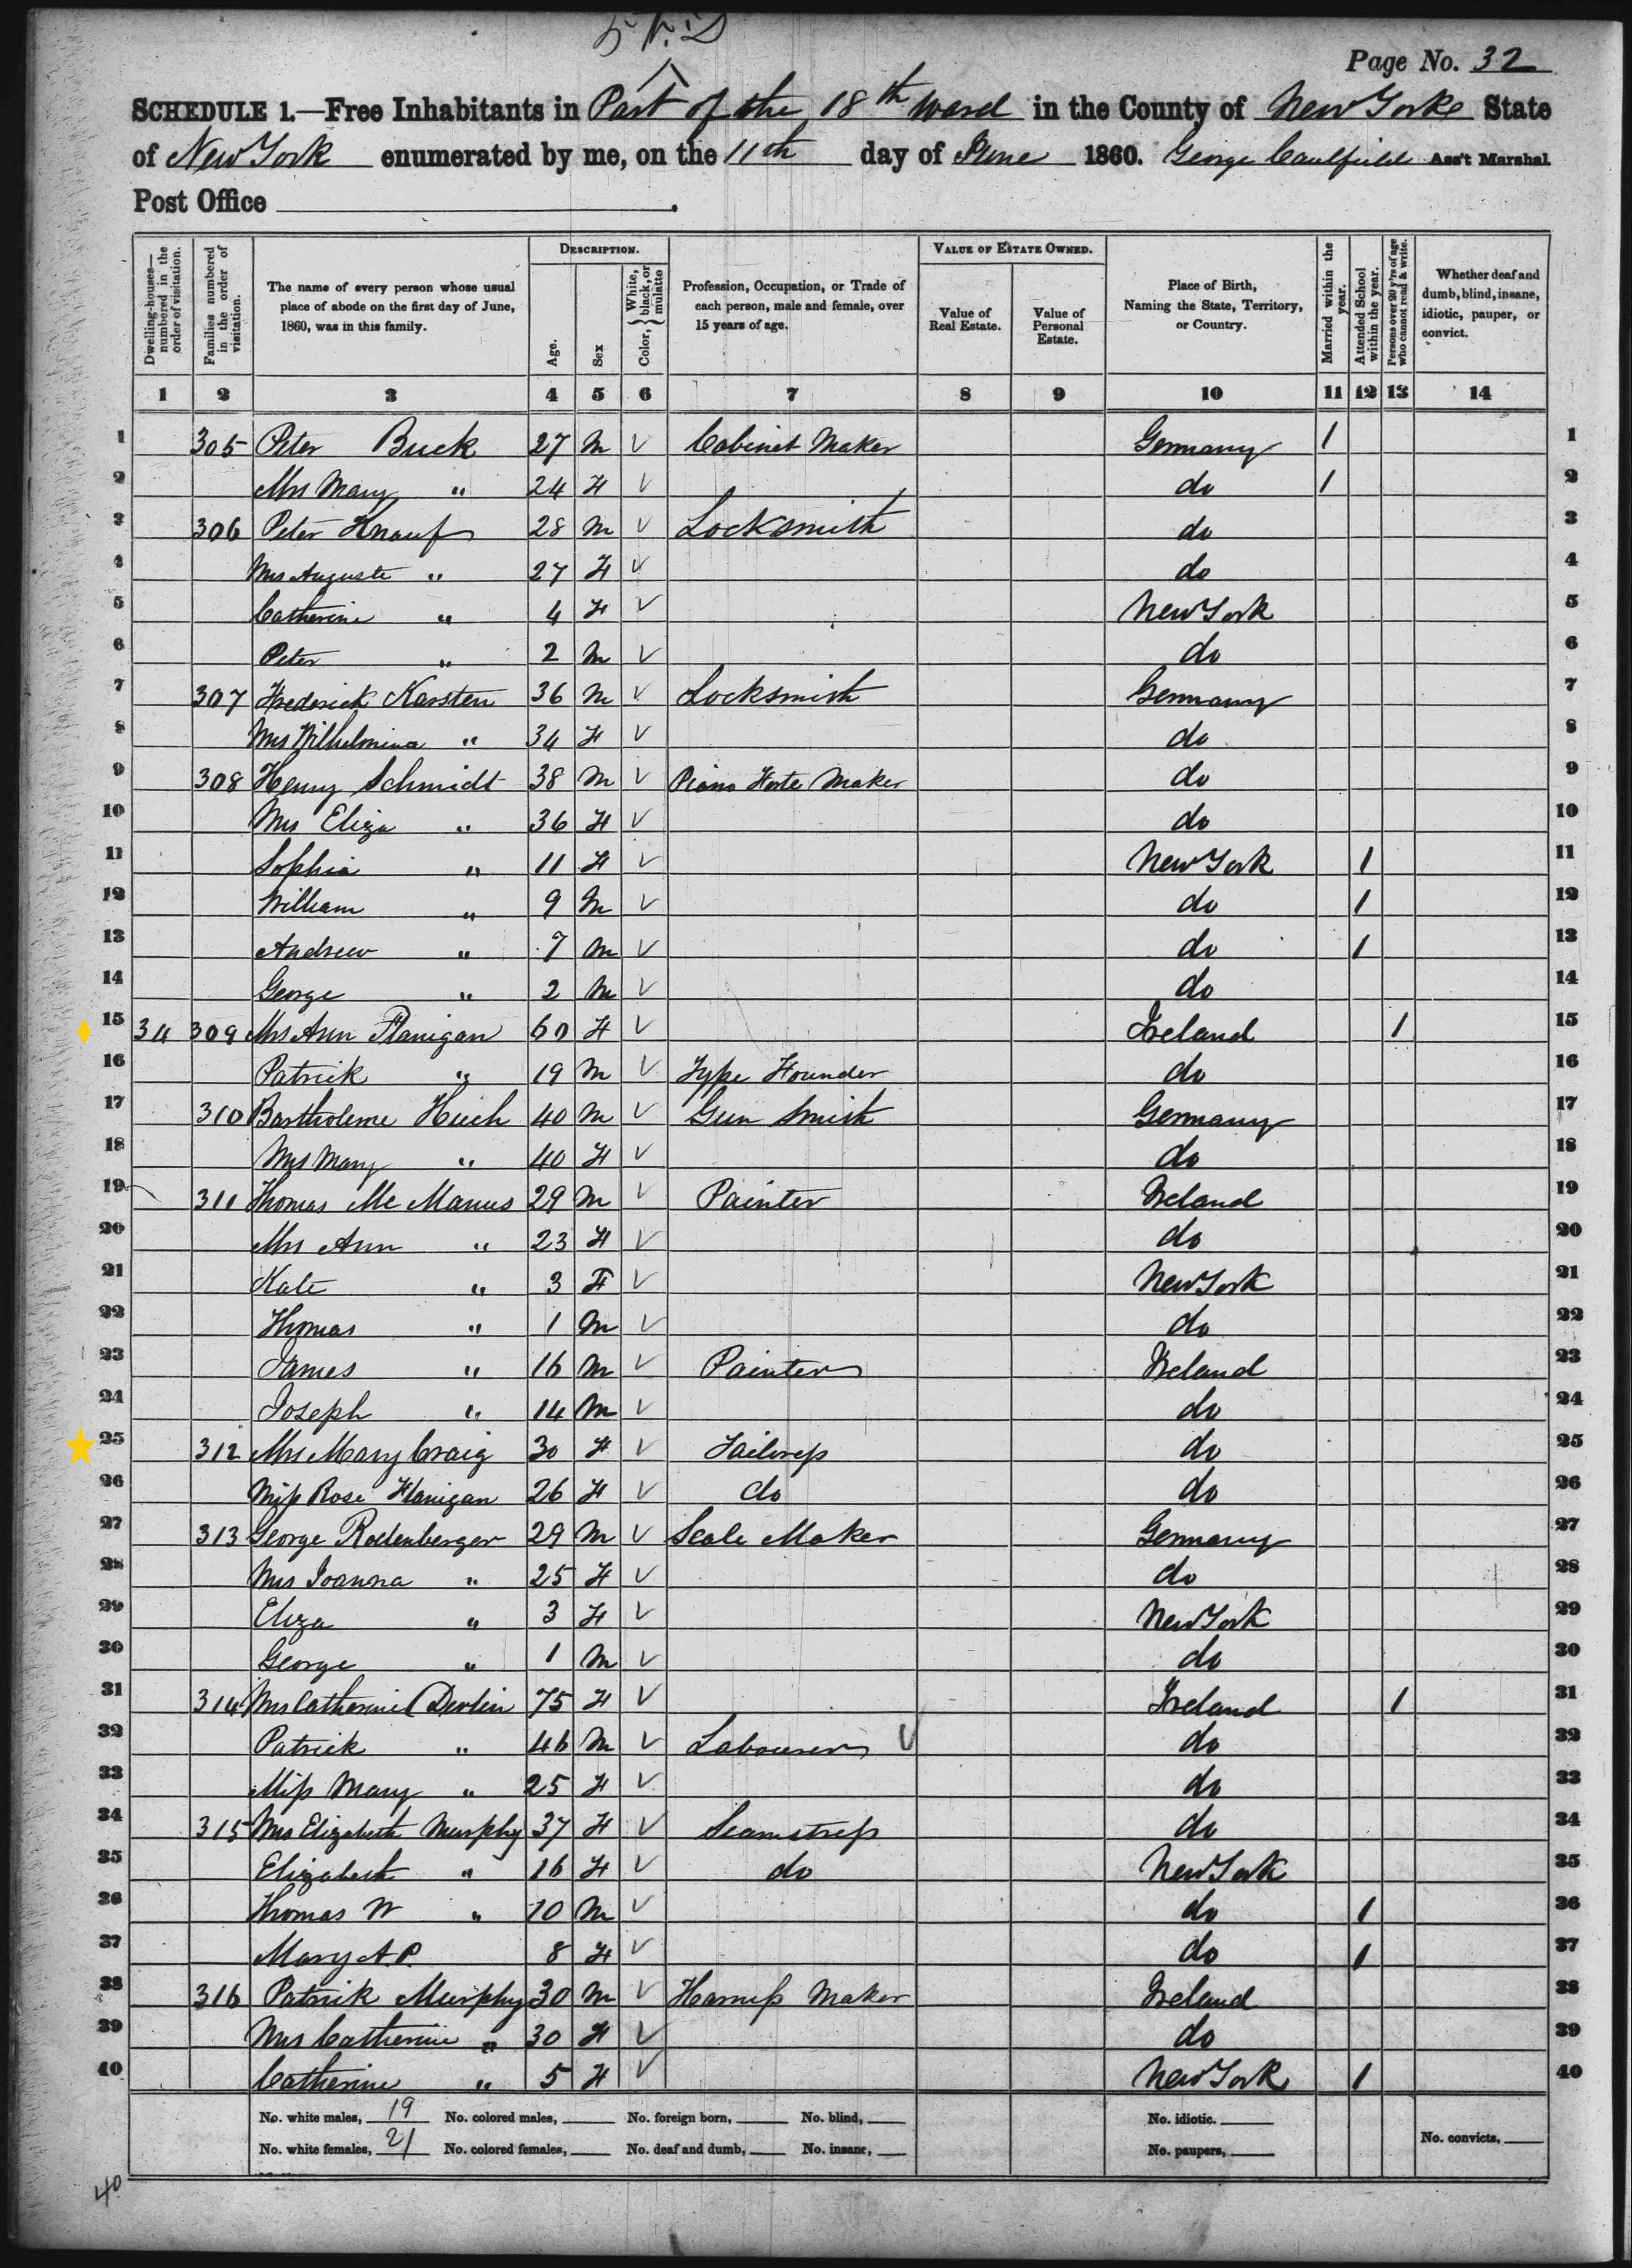 5 N. D
Page No. 32
SCHEDULE 1.—Free Inhabitants in Part of the 18th Ward in the County of New York State
of New York enumerated by me, on the 11th day of June 1860. George Caulfield Ass't Marshal
Post Office
Dwelling-houses—numbered in the order of visitation.
Families numbered in the order of visitation.
The name of every person whose usual place of abode on the first day of June, 1860, was in this family.
DESCRIPTION.
Age.
Sex
Color, White, black, or mulatto
Profession, Occupation, or Trade of each person, male and female, over 15 years of age.
VALUE OF ESTATE OWNED.
Value of Real Estate.
Value of Personal Estate.
Place of Birth, Naming the State, Territory, or Country.
Married within the year.
Attended School within the year.
Persons over 20 y'rs of age who cannot read & write.
Whether deaf and dumb, blind, insane, idiotic, pauper, or convict.
1 2 3 4 5 6 7 8 9 10 11 12 13 14
1 305 Peter Buck 27 M Cabinet Maker Germany 1 1
2 Mrs Mary " 24 F do 1 2
3 306 Peter Knauf 28 M Locksmith do 3
4 Mrs Auguste " 27 F do 4
5 Catherine " 4 F New York 5
6 Peter " 2 M do 6
7 307 Frederick Karsten 36 M Locksmith Germany 7
8 Mrs Wilhelmina " 34 F do 8
9 308 Henry Schmidt 38 M Piano Forte Maker do 9
10 Mrs Eliza " 36 F do 10
11 Sophia " 11 F New York 1 11
12 William " 9 M do 1 12
13 Andrew " 7 M do 1 13
14 George " 2 M do 14
15 34 309 Mrs Ann Flanigan 60 F Ireland 1 15
16 Patrick " 19 M Type Founder do 16
17 310 Bartholeme 40 M Gun Smith Germany 17
18 Mrs Mary " 40 F do 18
19 311 Thomas Mc Manus 29 M Painter Ireland 19
20 Mrs Ann " 23 F do 20
21 Kate " 3 F New York 21
22 Thomas " 1 M do 22
23 James " 16 M Painter Ireland 23
24 Joseph " 14 M do 24
25 312 Mrs Mary Craig 30 F Tailoress do 25
26 Miss Rose Flanigan 26 F do do 26
27 313 George Rodenberger 29 M Scale Maker Germany 27
28 Mrs Joanna " 25 F do 28
29 Eliza " 3 F New York 29
30 George " 1 M do 30
31 314 Mrs Catherine Devlin 75 F Ireland 1 31
32 Patrick " 46 M Labourer do 32
33 Miss Mary " 25 F do 33
34 315 Mrs Elizabeth Murphy 37 F Seamstress do 34
35 Elizabeth " 16 F do New York 35
36 Thomas W " 10 M do 1 36
37 Mary A. P. 8 F do 1 37
38 316 Patrick Murphy 30 M Harness Maker Ireland 38
39 Mrs Catherine " 30 F do 39
40 Catherine " 5 F New York 1 40
No. white males, 19 No. colored males, No. foreign born, No. blind, No. idiotic.
No. white females, 21 No. colored females, No. deaf and dumb, No. insane, No. paupers, No. convicts,
40